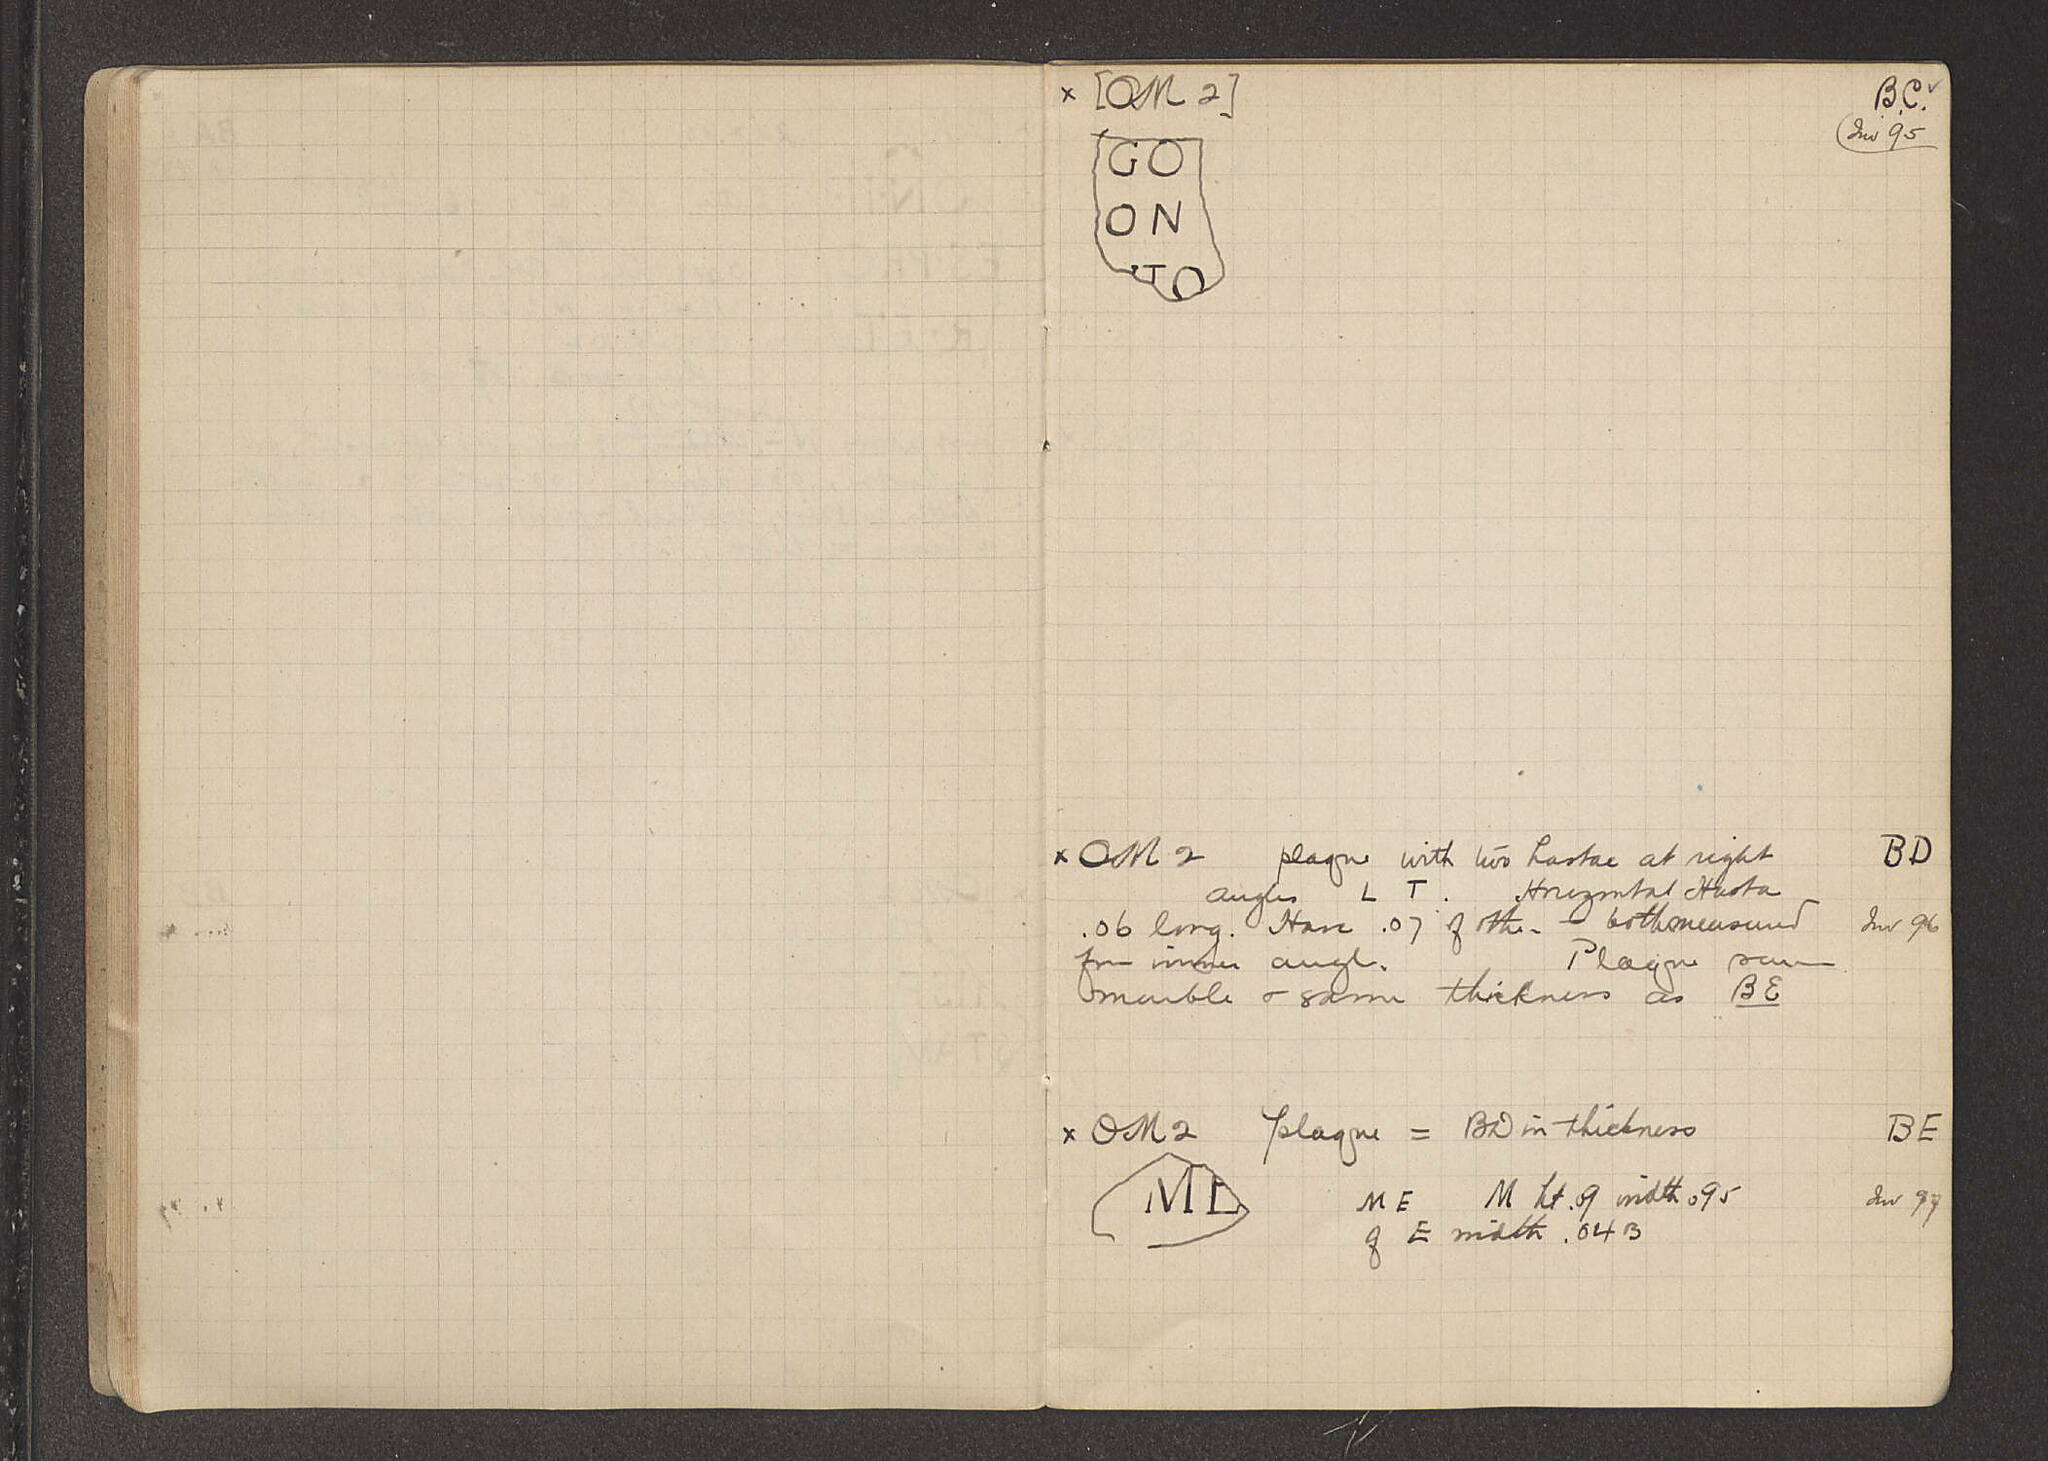 x [OM 2] B.C.
Inv 95
GO
ON
TO
x OM 2 plaque with two hastae at right BD
angles L T. Horizontal Hasta
.06 long. Have .07 of other - both measured Inv 96
from inner angle. Plaque same
marble + same thickness as BE
x OM 2 plaque = BD in thickness BE
ME
M E M ht .09 width .095 Inv 97
of E width .043